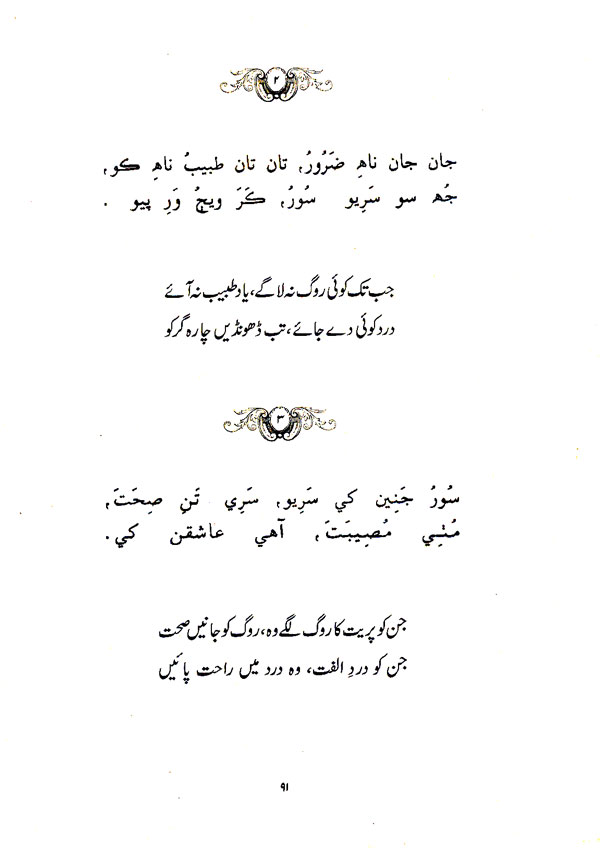 ۲
جان جان ناھِ ضَرُورُ، تان تان طبيبُ ناھِ ڪو،
جُھ سو سَرِيو سُورُ، ڪَرَ ويڄُ وَرِ پيو .
جب تک کوئی روگ نہ لاگے، یاد طبیب نہ آئے
درد کوئی دے جائے، تب ڈھونڈیں چارہ گر کو
۳
سُورُ جَنِين کي سَرِيو، سَرِي تَنِ صِحَتَ،
مُٺِي مُصِيبَتَ، آهي عاشقن کي.
جن کو پریت کا روگ لگے وہ، روگ کو جانیں صحت
جن کو دردِ الفت، وہ درد میں راحت پائیں
۹۱